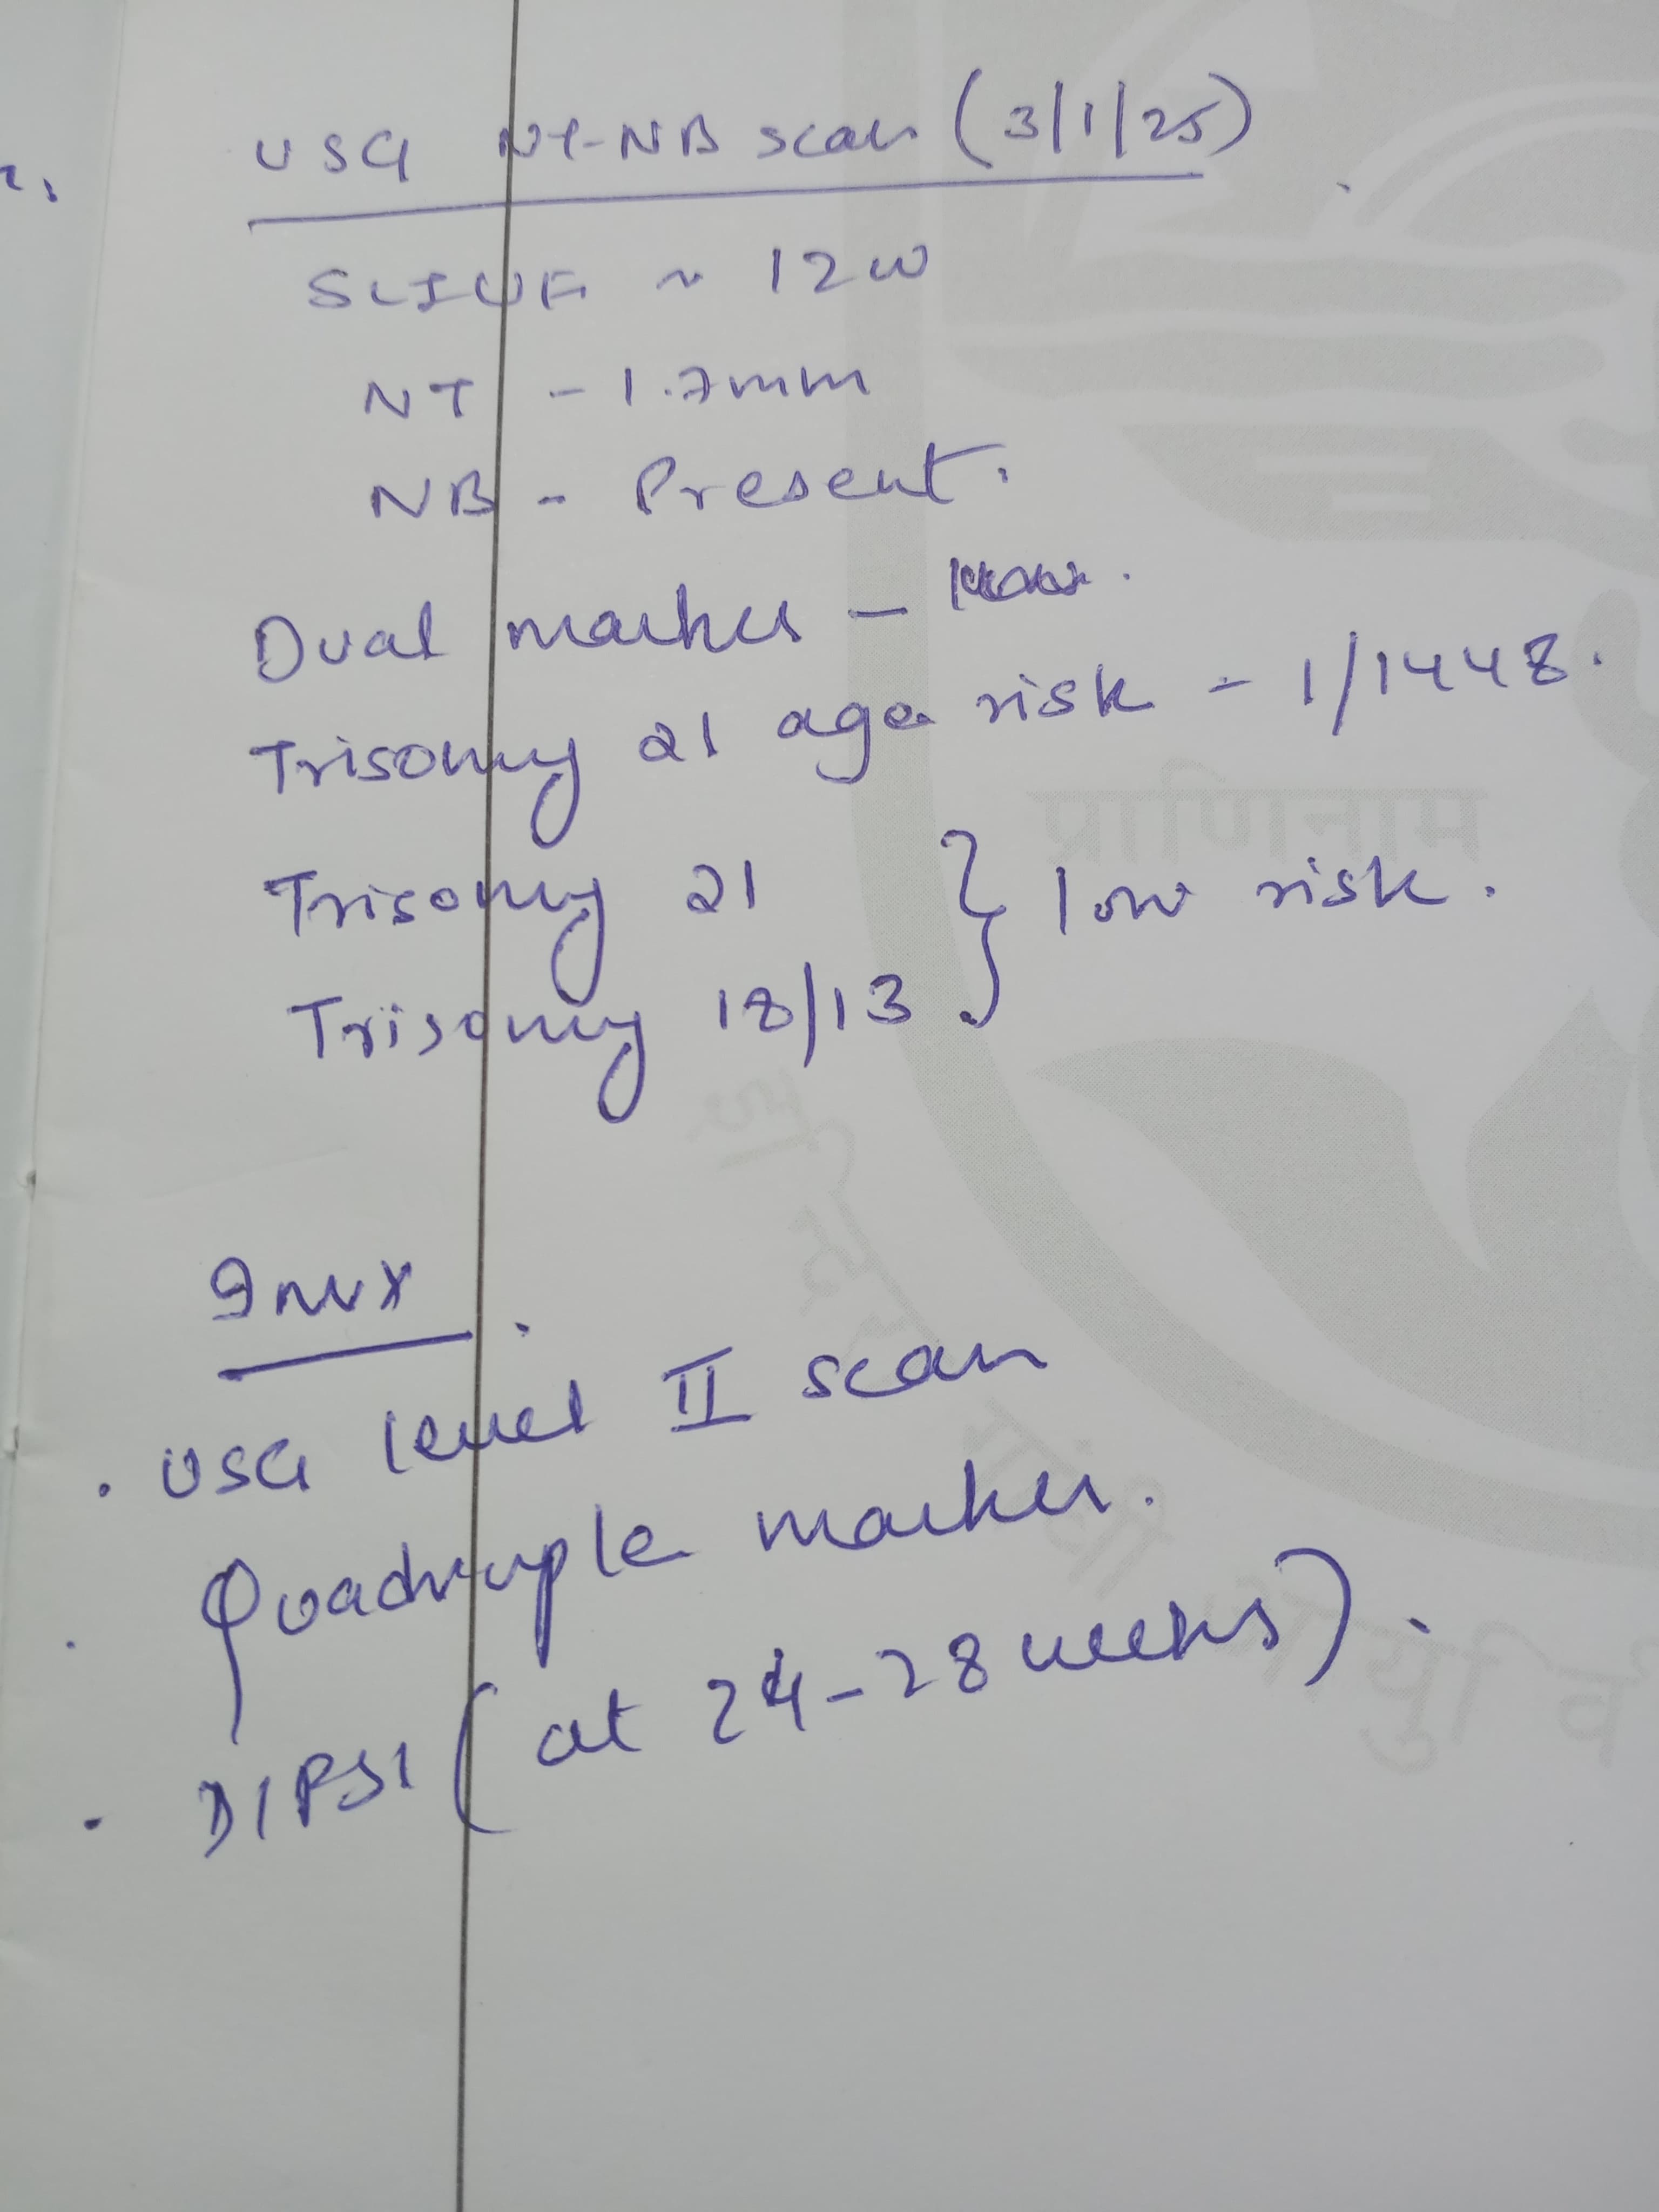 USG NT-NB scan (3/1/25)
SLIUF ~ 12w
NT - 1.7mm
NB - Present.
Dual marker -
Trisomy 21 age risk - 1/1448.
Trisomy 21 } low risk.
Trisomy 18/13
Invx
. USG level II scan
. Quadruple marker.
. DIPSI (at 24-28 weeks).
प्राणिनाम